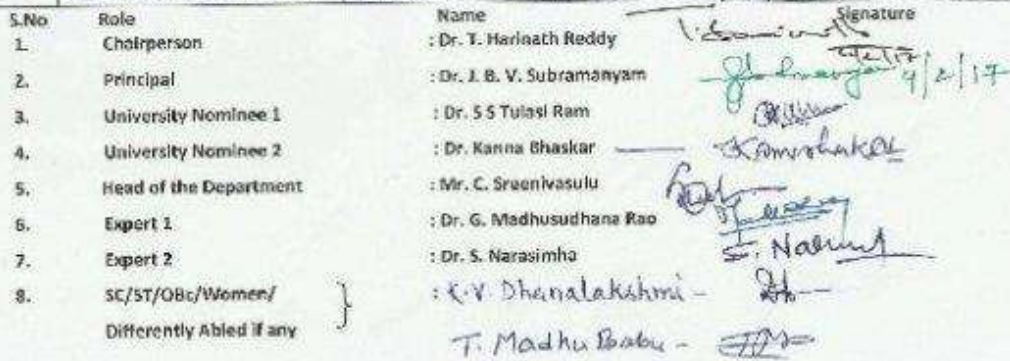 S.No Role Name Signature
1. Chairperson : Dr. T. Harinath Reddy
2. Principal : Dr. J. B. V. Subramanyam 4/2/17
3. University Nominee 1 : Dr. S S Tulasi Ram
4. University Nominee 2 : Dr. Kanna Bhaskar
5. Head of the Department : Mr. C. Sreenivasulu
6. Expert 1 : Dr. G. Madhusudhana Rao
7. Expert 2 : Dr. S. Narasimha
8. SC/ST/OBc/Women/ } : K.V. Dhanalakshmi -
Differently Abled if any T. Madhu Babu -